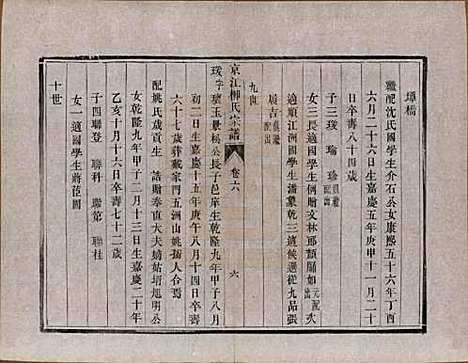 繼配沈氏國學生介石公女康熙五十六年丁酉
六月二十六日生嘉慶五年庚申十一月二十
日卒壽八十四歲
子三 瑜 俱繼配出
女三長適國學生例贈文林郎顏如元配出次
適順江洲國學生諸象乾三適候選從九品張
展吉俱繼配出
九世
京江柳氏宗譜 卷六 六
字璧玉景松公長子邑庠生乾隆九年甲子八月
初二日生嘉慶十五年庚午八月十四日卒壽
六十七歲葬戴家門五洲山姚孺人合焉
配姚氏歲貢生 誥贈奉直大夫旭明公
女乾隆九年甲子二月十三日生嘉慶二十年
乙亥十月十六日卒壽七十二歲
子四聯登 聯科 聯第 聯桂
女一適國學生蔣園
十世